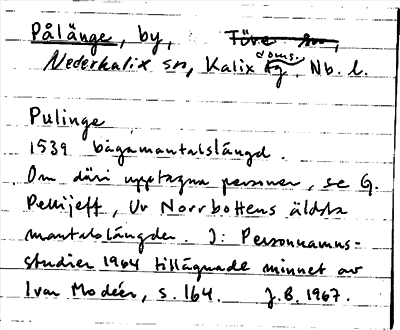 Pålänge, by, Töre sn,
Nederkalix sn, Kalix doms. tg. Nb. l.
Pulinge
1539 bågamantalslängd.
Om däri upptagna personer, se G.
Pellijeff, Ur Norrbottens äldsta
mantalslängder. I: Personnamns-
studier 1964 tillägnade minnet av
Ivar Modéer, s. 164. J.B. 1967.